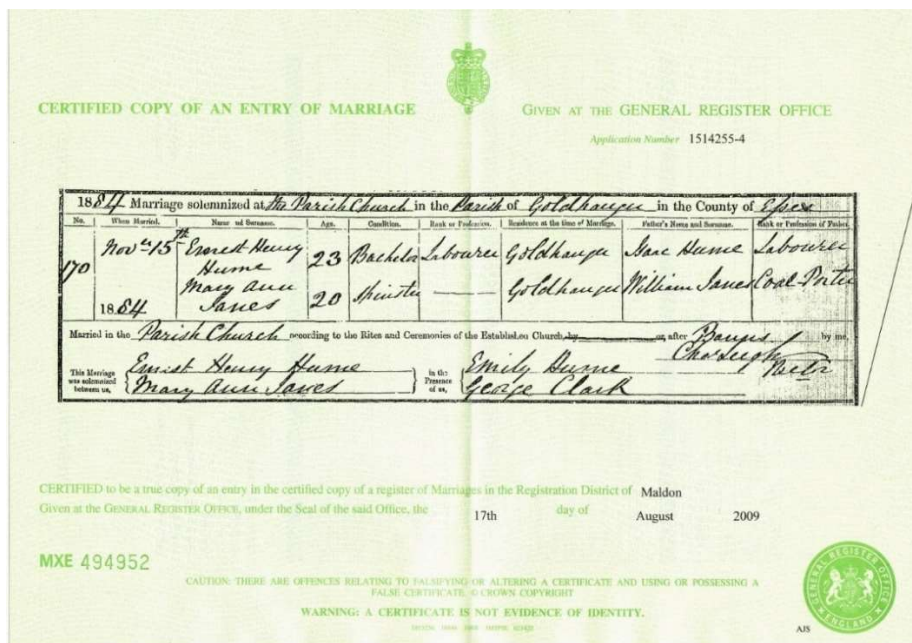 CERTIFIED COPY OF AN ENTRY OF MARRIAGE
GIVEN AT THE GENERAL REGISTER OFFICE
Application Number 1514255-4
1884 Marriage solemnized at the Parish Church in the Parish of Goldhanger in the County of Essex
No. When Married. Name and Surname. Age. Condition. Rank or Profession. Residence at the time of Marriage. Father's Name and Surname. Rank or Profession of Father.
170 Nover 15th 1884 Ernest Henry Hume 23 Bachelor Labourer Goldhanger Isaac Hume Labourer
Mary Ann Janes 20 Spinster — Goldhanger William Janes Coal Porter
Married in the Parish Church according to the Rites and Ceremonies of the Established Church, by or after Banns by me,
Chas Leigh
Rector
This Marriage was solemnized between us, Ernest Henry Hume Mary Ann Janes
in the Presence of us, Emily Hume George Clark
CERTIFIED to be a true copy of an entry in the certified copy of a register of Marriages in the Registration District of Maldon
Given at the GENERAL REGISTER OFFICE, under the Seal of the said Office, the 17th day of August 2009
MXE 494952
CAUTION: THERE ARE OFFENCES RELATING TO FALSIFYING OR ALTERING A CERTIFICATE AND USING OR POSSESSING A
FALSE CERTIFICATE. © CROWN COPYRIGHT
WARNING: A CERTIFICATE IS NOT EVIDENCE OF IDENTITY.
GENERAL REGISTER OFFICE
ENGLAND
AJS